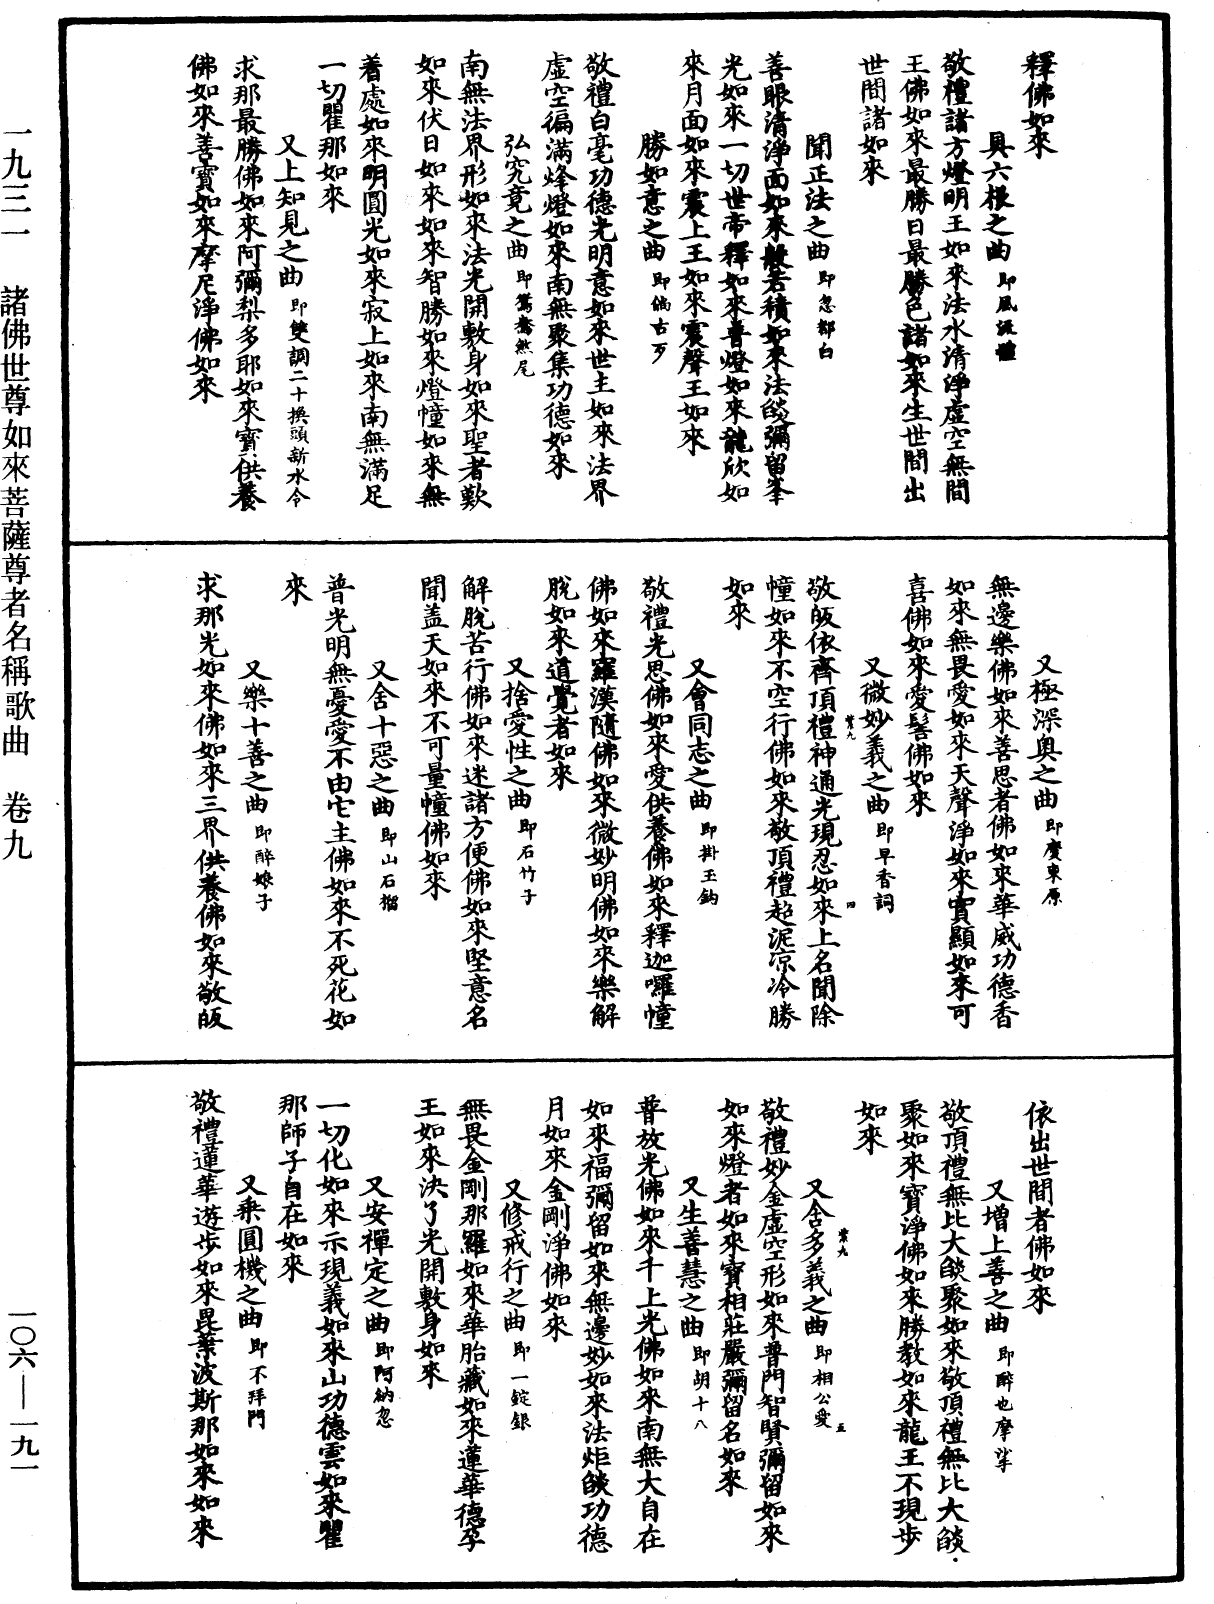 釋佛如來
具六根之曲 即風流體
敬禮諸方燈明王如來法水清淨虛空無間
王佛如來最勝日最勝色諸如來生世間出
世間諸如來
聞正法之曲 即忽都白
善眼清淨面如來般若積如來法燄彌留峯
光如來一切世帝釋如來普燈如來龍欣如
來月面如來震上王如來震聲王如來
勝如意之曲 即
敬禮白毫功德光明意如來世主如來法界
虛空徧滿烽燈如來南無聚集功德如來
弘究竟之曲 即鴛鴦煞尾
南無法界形如來法光開敷身如來聖者歎
如來伏日如來如來智勝如來燈幢如來無
着處如來明圓光如來寂上如來南無滿足
一切瞿那如來
又上知見之曲 即雙調二十換頭新水令
求那最勝佛如來阿彌梨多耶如來寶供養
佛如來善寶如來摩尼淨佛如來
又極深奧之曲 即慶東原
無邊樂佛如來善思者佛如來華威功德香
如來無畏愛如來天聲淨如來寶顯如來可
喜佛如來愛髻佛如來
又微妙義之曲 即早香詞
敬皈依齊頂禮神通光現忍如來上名聞除
幢如來不空行佛如來敬頂禮超泥凉冷勝
如來
又會同志之曲 即掛玉鈎
敬禮光思佛如來愛供養佛如來釋迦囉幢
佛如來羅漢隨佛如來微妙明佛如來樂解
脫如來道覺者如來
又捨愛性之曲 即石竹子
解脫苦行佛如來迷諸方便佛如來堅意名
聞盖天如來不可量幢佛如來
又舍十惡之曲 即山石榴
普光明無憂愛不由它主佛如來不死花如
來
又樂十善之曲 即醉娘子
求那光如來佛如來三界供養佛如來敬皈
依出世間者佛如來
又增上善之曲 即醉也摩挲
敬頂禮無比大燄聚如來敬頂禮無比大燄
聚如來寶淨佛如來勝教如來龍王不現步
如來
又舍多義之曲 即相公愛
敬禮妙金虛空形如來普門智賢彌留如來
如來燈者如來寶相莊嚴彌留名如來
又生善慧之曲 即胡十八
普放光佛如來千上光佛如來南無大自在
如來福彌留如來無邊妙如來法炬燄功德
月如來金剛淨佛如來
又修戒行之曲 即一錠銀
無畏金剛那羅如來華胎藏如來蓮華德孕
王如來決了光開敷身如來
又安禪定之曲 即阿納忽
一切化如來示現義如來山功德雲如來瞿
那師子自在如來
又乘圓機之曲 即不拜門
敬禮蓮華遊步如來毘葉波斯那如來如來
紫九
四
紫九
五
一九三一 諸佛世尊如來菩薩尊者名稱歌曲 卷九
一〇六—一九一